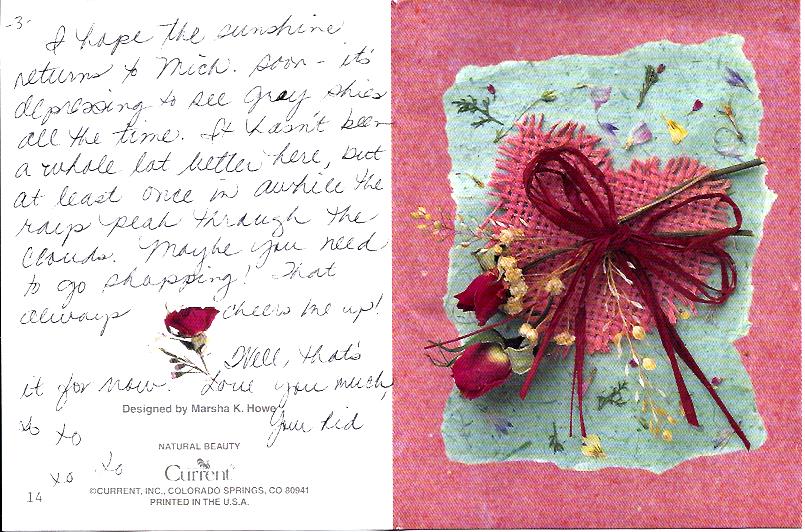 -3-
I hope the sunshine
returns to Mich. soon - it's
depressing to see gray skies
all the time. It hasn't been
a whole lot better here, but
at least once in awhile the
rays peak through the
clouds. Maybe you need
to go shopping! That
always cheers me up!
Well, that's
it for now. Love you much,
Designed by Marsha K. Howe
Your kid
xo xo
NATURAL BEAUTY
Current
xo xo
©CURRENT, INC., COLORADO SPRINGS, CO 80941
14
PRINTED IN THE U.S.A.